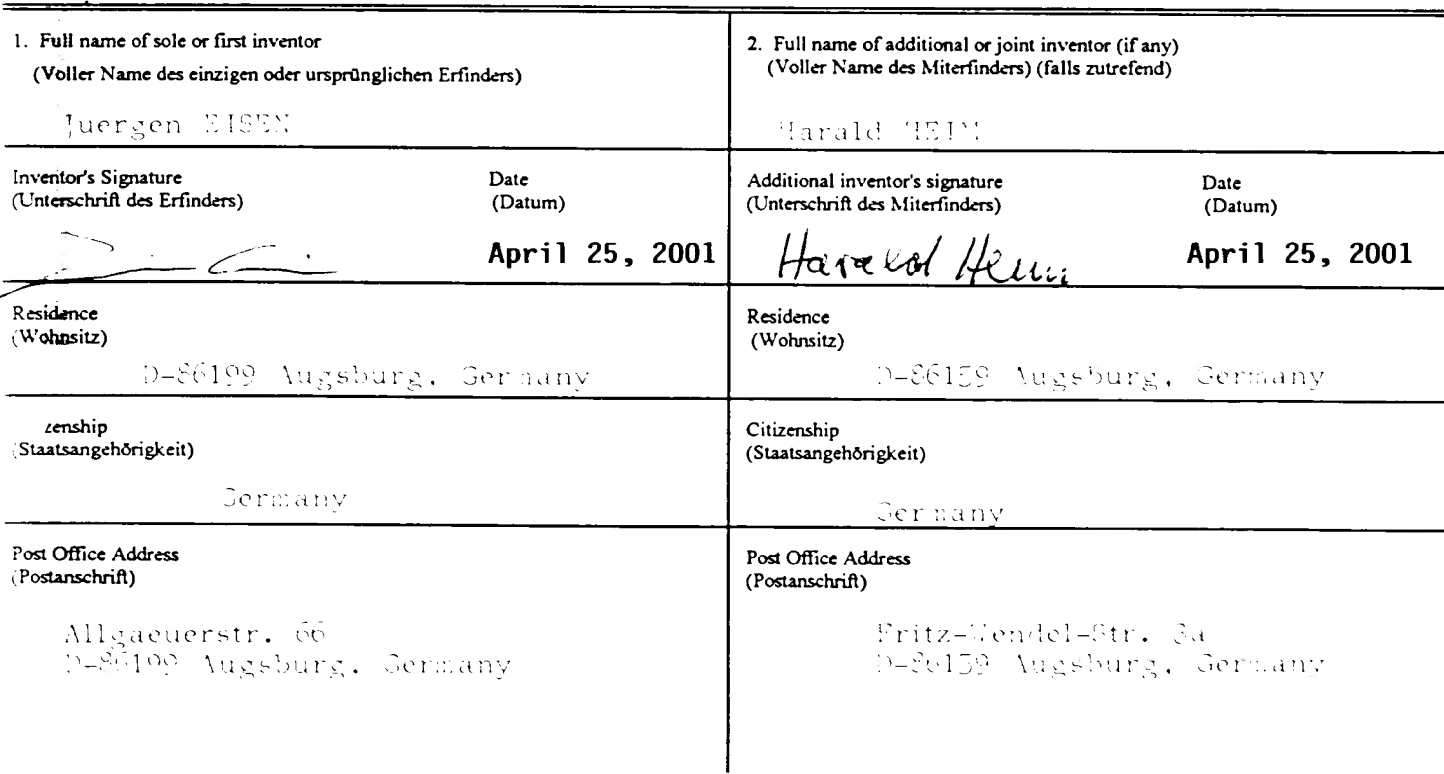 1. Full name of sole or first inventor
(Voller Name des einzigen oder ursprünglichen Erfinders)
Juergen EISEN
Inventor's Signature
(Unterschrift des Erfinders)
Date
(Datum)
April 25, 2001
Residence
(Wohnsitz)
D-86199 Augsburg, Germany
zenship
(Staatsangehörigkeit)
Germany
Post Office Address
(Postanschrift)
Allgaeuerstr. 66
D-86199 Augsburg, Germany
2. Full name of additional or joint inventor (if any)
(Voller Name des Miterfinders) (falls zutrefend)
Harald HEIM
Additional inventor's signature
(Unterschrift des Miterfinders)
Date
(Datum)
Harald Heim
April 25, 2001
Residence
(Wohnsitz)
D-86159 Augsburg, Germany
Citizenship
(Staatsangehörigkeit)
Germany
Post Office Address
(Postanschrift)
Fritz-Wendel-Str. 3a
D-86159 Augsburg, Germany